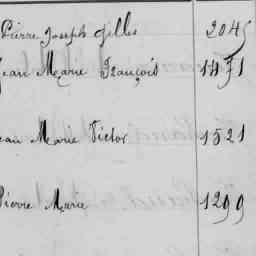 Pierre Joseph Gilles 2045
Jean Marie François 1471
Jean Marie Victor 1521
Pierre Marie 1299